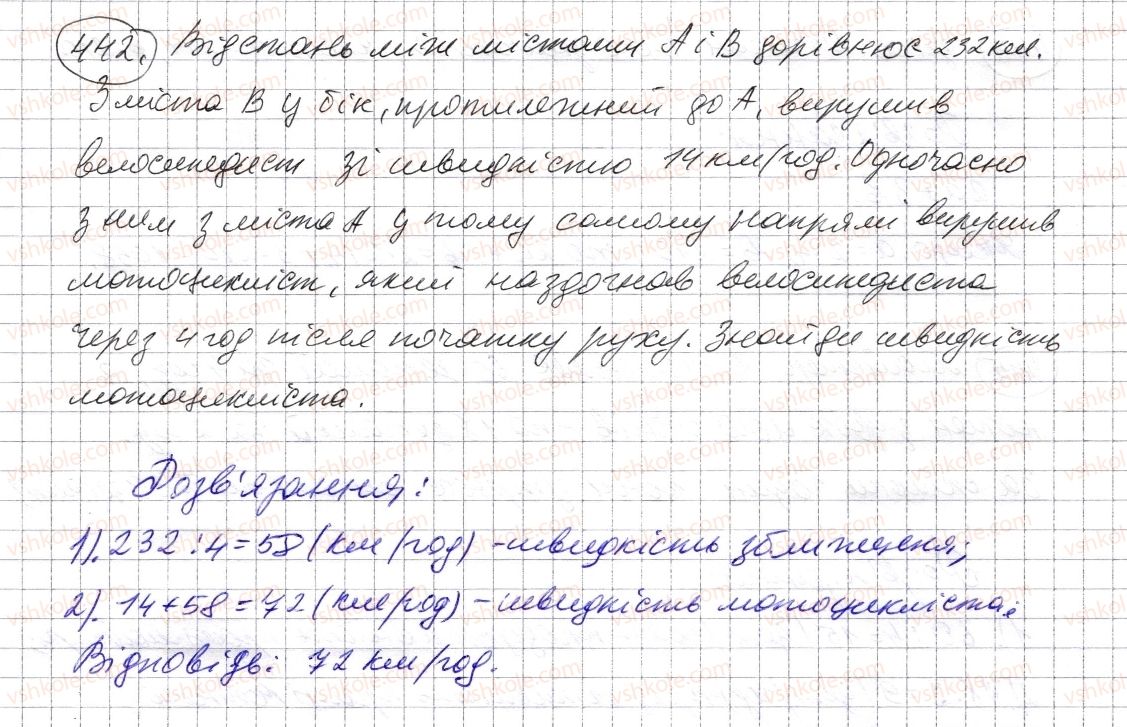 442. Відстань між містами А і В дорівнює 232 км.
З міста В у бік, протилежний до А, вирушив
велосипедист зі швидкістю 14 км/год. Одночасно
з ним з міста А у тому самому напрямі вирушив
мотоцикліст, який наздогнав велосипедиста
через 4 год після початку руху. Знайди швидкість
мотоцикліста.
Розв'язання:
1). 232 : 4 = 58 (км/год) - швидкість зближення;
2). 14 + 58 = 72 (км/год) - швидкість мотоцикліста.
Відповідь: 72 км/год.